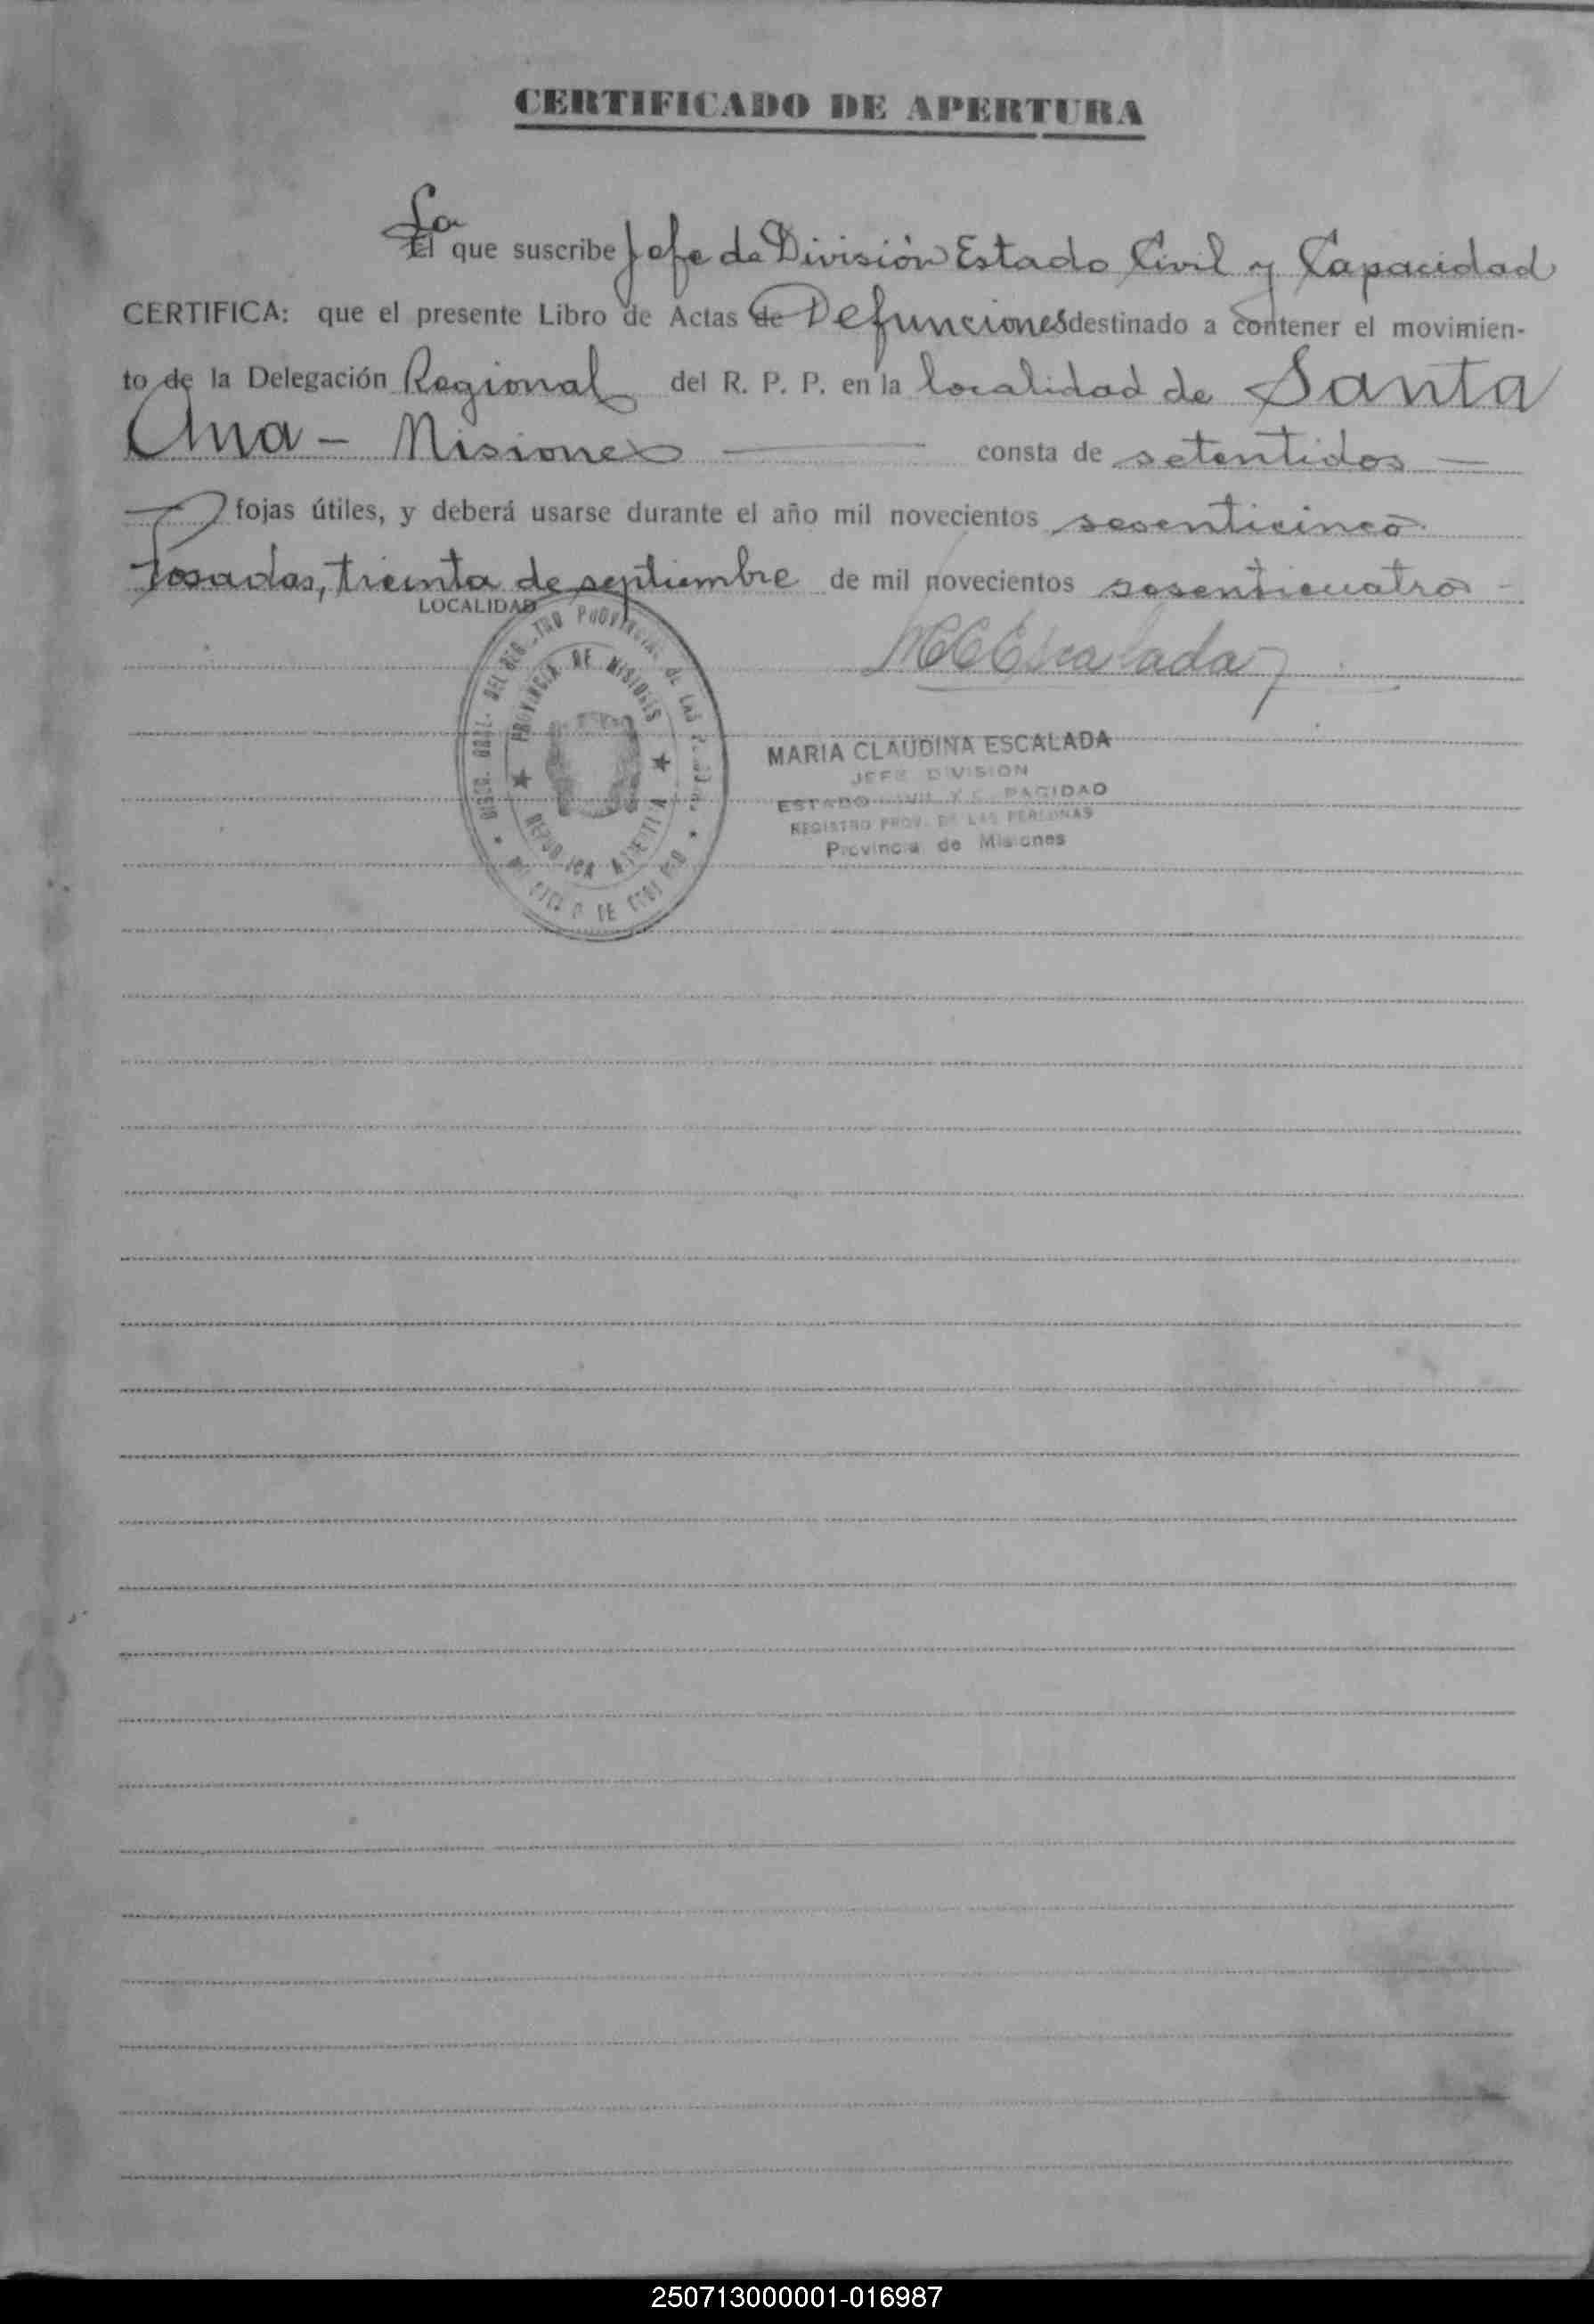 CERTIFICADO DE APERTURA
La
El que suscribe Jefe de División Estado Civil y Capacidad
CERTIFICA: que el presente Libro de Actas de Defunciones destinado a contener el movimien-
to de la Delegación Regional del R. P. P. en la localidad de Santa
Ana - Misiones — consta de setentidos —
— fojas útiles, y deberá usarse durante el año mil novecientos sesenticinco
Posadas, treinta de septiembre de mil novecientos sesenticuatro -
LOCALIDAD
MCEscalada
PROVINCIA DE MISIONES
MARIA CLAUDINA ESCALADA
JEFE DIVISION
ESTADO CIVIL Y CAPACIDAD
REGISTRO PROV. DE LAS PERSONAS
Provincia de Misiones
250713000001-016987